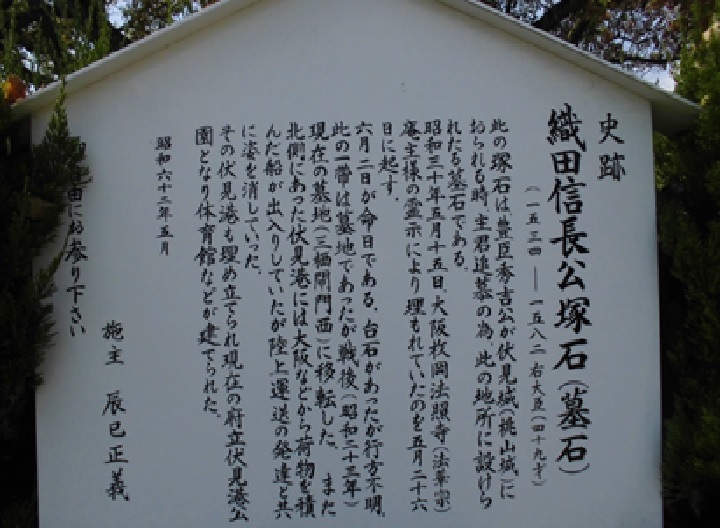 史跡
織田信長公塚石(墓石)
(一五三四 ― 一五八二 右大臣(四十九才)
此の塚石は豊臣秀吉公が伏見城(桃山城)に
おられる時、主君追慕の為、此の地所に設けら
れたる墓石である。
昭和三十年五月十五日、大阪枚岡法照寺(法華宗)
庵主様の霊示により埋もれていたのを五月二十六
日に起す。
六月二日が命日である。台石があったが行方不明。
此の一帯は墓地であったが戦後(昭和二十三年)
現在の墓地(三栖閘門西)に移転した。 また
北側にあった伏見港には大阪などから荷物を積
んだ船が出入りしていたが陸上運送の発達と共
に姿を消していった。
その伏見港も埋め立てられ現在の府立伏見港公
園となり体育館などが建てられた。
昭和六十三年五月
施主 辰巳正義
由にお参り下さい